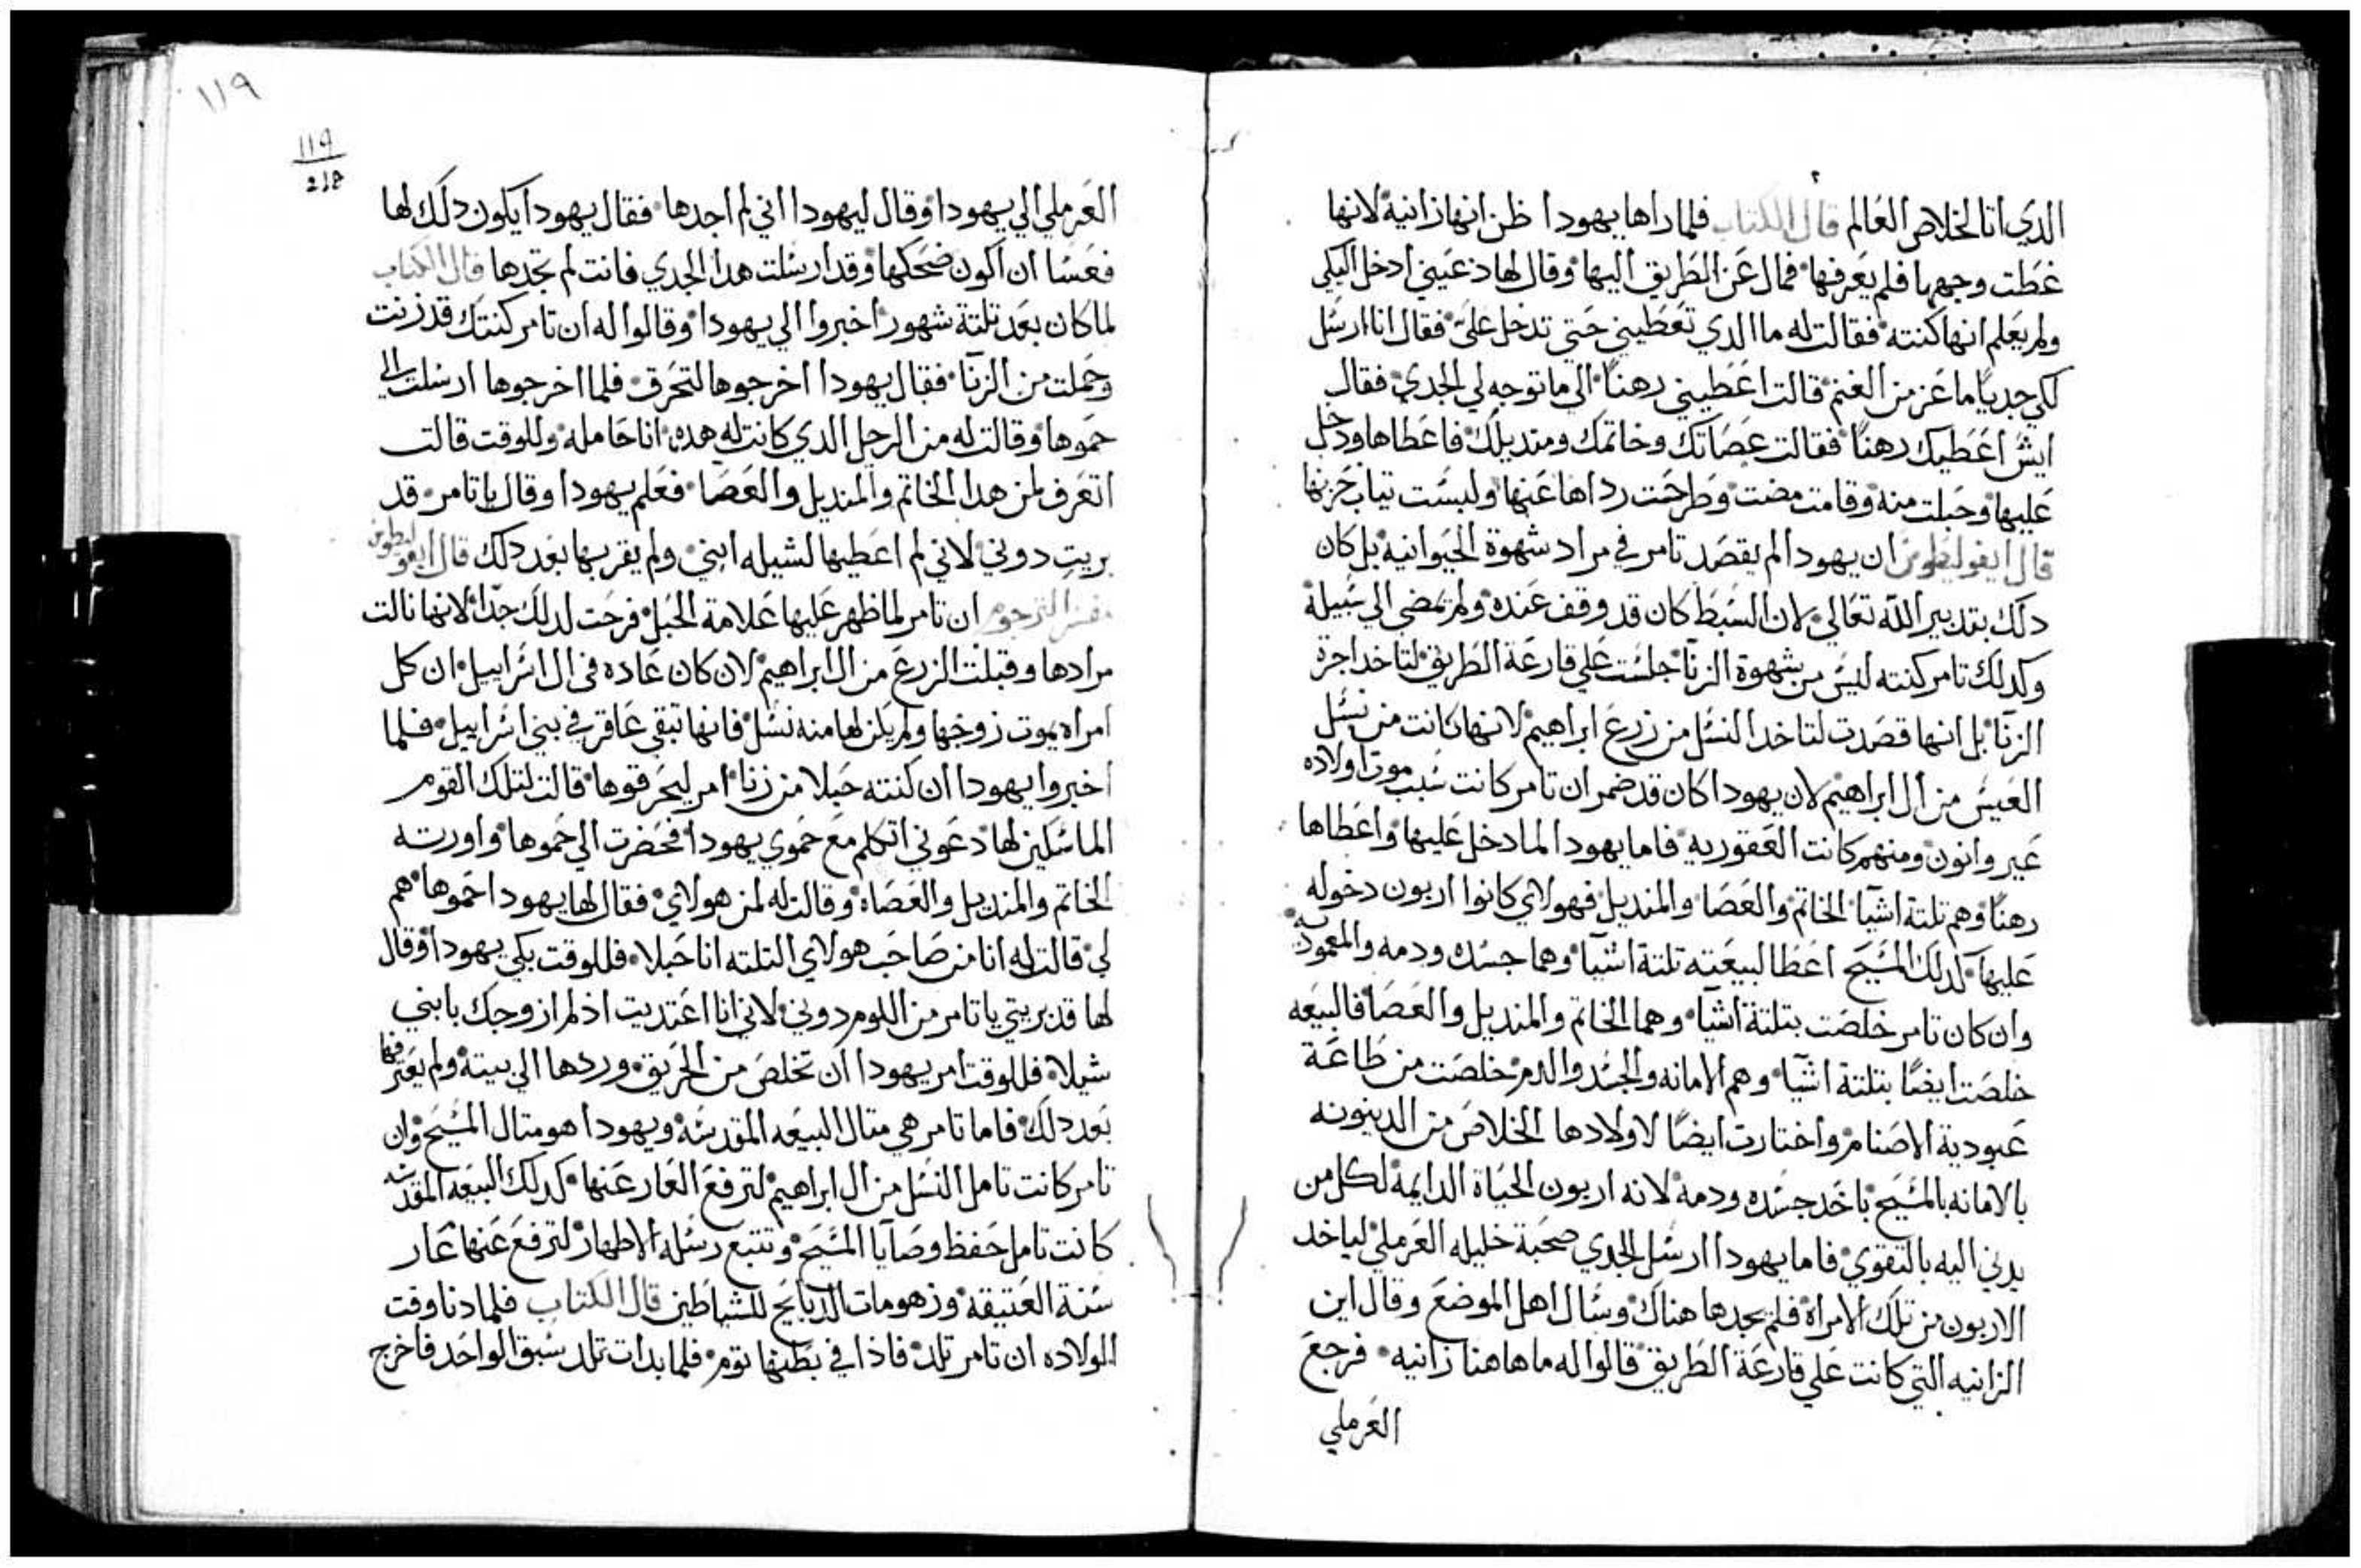 الدي اتا لخلاص العالم قال الكتاب فلما راها يهودا ظن انها زانية لانها
غطت وجهها فلم يعرفها فمال عن الطريق اليها وقال لها دعيني ادخل اليكي
ولم يعلم انها كنته فقالت له ما الدي تعطيني حتي تدخل علي فقال انا ارسل
لكي جديا ماعز من الغنم قالت اعطيني رهنا الي ما توجه لي الجدي فقال
ايش اعطيك رهنا فقالت عصاتك وخاتمك ومنديلك فاعطاها ودخل
عليها وحبلت منه وقامت مضت وطرحت رداها عنها ولبست تياب حزنها
قال ايفوليطوس ان يهودا لم يقصد تامر في مراد شهوة الحيوانية بل كان
دلك بتدبير الله تعالي لان السبط كان قد وقف عنده ولم يمضي الي سبيلة
وكدلك تامر كنته ليس من شهوة الزنا جلست علي قارعة الطريق لتاخد اجرة
الزنا بل انها قصدت لتاخد النسل من زرع ابراهيم لانها كانت من نسل
العيس من ال ابراهيم لان يهودا كان قد ضمر ان تامر كانت سبب موت اولاده
عير وانون ومنهم كانت العقوربه فاما يهودا لما دخل عليها واعطاها
رهنا وهم تلتة اشيا الخاتم والعصا والمنديل فهولاي كانوا اربون دخوله
عليها كدلك المسيح اعطا لبيعته تلتة اشيا وهما جسده ودمه والمعمودية
وان كان تامر خلصت بتلتة اشيا وهما الخاتم والمنديل والعصا فالبيعه
خلصت ايضا بتلتة اشيا وهم الامانه والجسد والدم خلصت من طاعة
عبودية الاصنام واختارت ايضا لاولادها الخلاص من الدينونه
بالامانه بالمسيح باخد جسده ودمه لانه اربون الحياة الدايمة لكل من
يدني اليه بالتقوي فاما يهودا ارسل الجدي صحبة خليله العرملي لياخد
الاربون من تلك الامراة فلم يجدها هناك وسال اهل الموضع وقال اين
الزانيه التي كانت علي قارعة الطريق قالوا له ما هاهنا زانيه فرجع
العرملي
١١٩
١١٩
218
العرملي الي يهودا وقال ليهودا اني لم اجدها فقال يهودا يكون دلك لها
فعسا ان اكون ضحكها وقد ارسلت هدا الجدي فانت لم تجدها قال الكتاب
لما كان بعد تلتة شهور اخبروا الي يهودا وقالوا له ان تامر كنتك قد زنت
وحملت من الزنا فقال يهودا اخرجوها لتحرق فلما اخرجوها ارسلت الي
حموها وقالت له من الرجل الدي كانت له هده انا حامله وللوقت قالت
اتعرف لمن هدا الخاتم والمنديل والعصا فعلم يهودا وقال يا تامر قد
بريت دوني لاني لم اعطيها لشيله ابني ولم يقربها بعد دلك قال ايفوليطوس
مفسر الترجوم ان تامر لما ظهر عليها علامة الحبل فرحت لدلك جدا لانها نالت
مرادها وقبلت الزرع من ال ابراهيم لان كان عاده في ال اسراييل ان كل
امراه يموت زوجها ولم يكن لها منه نسل فانها تبقي عاقر في بني اسراييل فلما
اخبروا يهودا ان كنته حبلا من زنا امر ليحرقوها قالت لتلك القوم
الماسكين لها دعوني اتكلم مع حموي يهودا فحضرت الي حموها واورته
الخاتم والمنديل والعصاه وقالت له لمن هولاي فقال لها يهودا حموها هم
لي قالت له انا من صاحب هولاي التلته انا حبلا فللوقت بكي يهودا وقال
لها قد بريتي يا تامر من اللوم دوني لاني انا اعتديت اذ لم ازوجك بابني
شيلا فللوقت امر يهودا ان تخلص من الحريق وردها الي بيته ولم يعترفها
بعد دلك فاما تامر هي متال البيعه المقدسه ويهودا هو متال المسيح وان
تامر كانت تامل النسل من ال ابراهيم لترفع العار عنها كدلك البيعه المقدسه
كانت تامل حفظ وصايا المسيح وتتبع رسله الاطهار لترفع عنها عار
سنة العتيقه وزهومات الدبايح للشياطين قال الكتاب فلما دنا وقت
الولاده ان تامر تلد فاذا في بطنها توم فلما بدات تلد سبق الواحد فاخرج